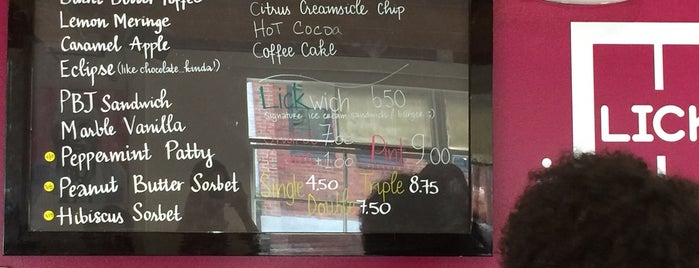 Burnt Butter Toffee
Lemon Meringe
Caramel Apple
Eclipse (like chocolate..kinda!)
PBJ Sandwich
Marble Vanilla
Peppermint Patty
Peanut Butter Sorbet
Hibiscus Sorbet
Citrus Creamsicle Chip
HOT Cocoa
Coffee Cake
Lickwich 6.50
signature ice cream sandwich / burger :)
7.00
+1.00 Pint 9.00
Single 4.50 Triple 8.75
Double 7.50
LICK